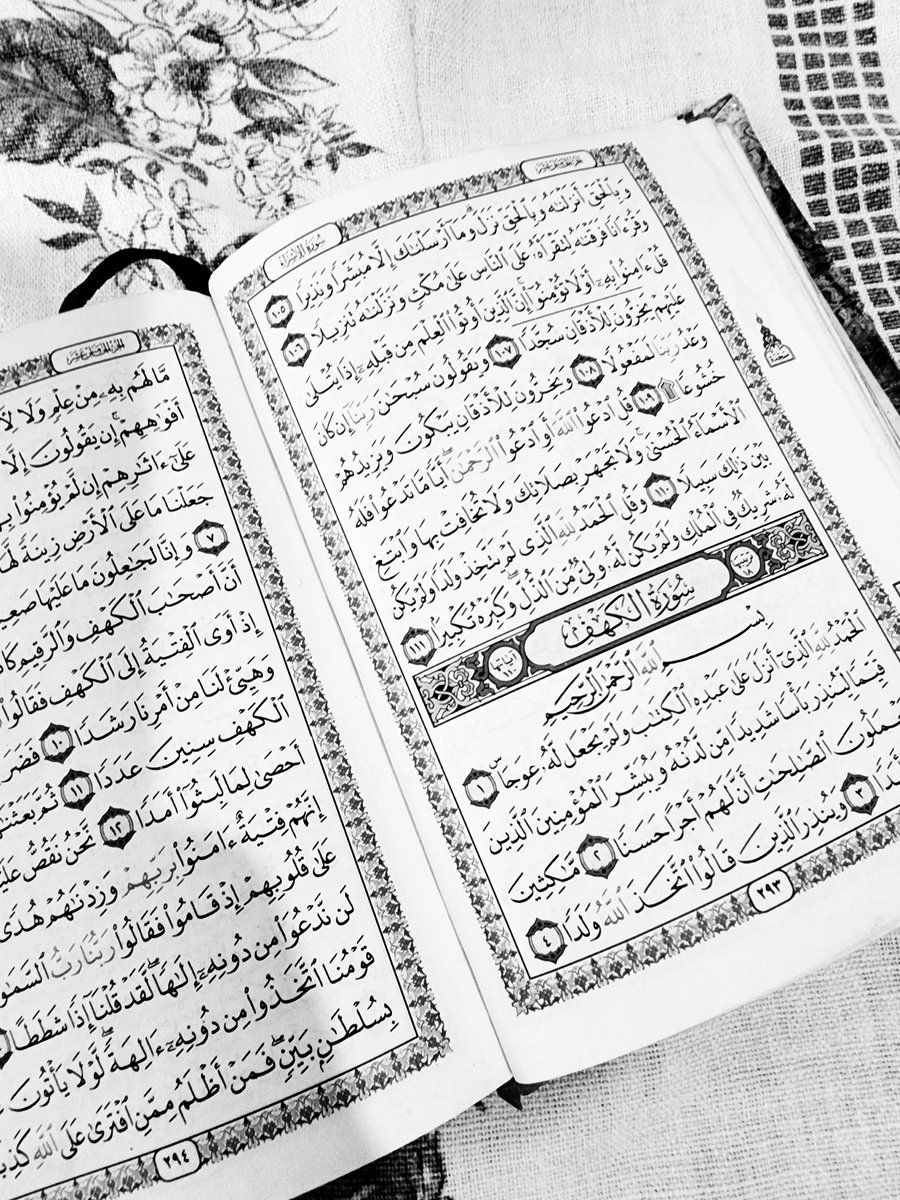 سُورَةُ الإِسْرَاءِ
الجزء الخامس عشر
وَبِالْحَقِّ أَنزَلْنَٰهُ وَبِالْحَقِّ نَزَلَ وَمَا أَرْسَلْنَٰكَ إِلَّا مُبَشِّرًا وَنَذِيرًا ١٠٥
وَقُرْءَانًا فَرَقْنَٰهُ لِتَقْرَأَهُۥ عَلَى النَّاسِ عَلَىٰ مُكْثٍ وَنَزَّلْنَٰهُ تَنزِيلًا ١٠٦
قُلْ ءَامِنُوا۟ بِهِۦٓ أَوْ لَا تُؤْمِنُوٓا۟ إِنَّ الَّذِينَ أُوتُوا۟ الْعِلْمَ مِن قَبْلِهِۦٓ إِذَا يُتْلَىٰ
عَلَيْهِمْ يَخِرُّونَ لِلْأَذْقَانِ سُجَّدًا ١٠٧ وَيَقُولُونَ سُبْحَٰنَ رَبِّنَآ إِن كَانَ
وَعْدُ رَبِّنَا لَمَفْعُولًا ١٠٨ وَيَخِرُّونَ لِلْأَذْقَانِ يَبْكُونَ وَيَزِيدُهُمْ
خُشُوعًا ۩ ١٠٩ قُلِ ادْعُوا۟ اللَّهَ أَوِ ادْعُوا۟ الرَّحْمَٰنَ أَيًّا مَّا تَدْعُوا۟ فَلَهُ
الْأَسْمَآءُ الْحُسْنَىٰ وَلَا تَجْهَرْ بِصَلَاتِكَ وَلَا تُخَافِتْ بِهَا وَابْتَغِ
بَيْنَ ذَٰلِكَ سَبِيلًا ١١٠ وَقُلِ الْحَمْدُ لِلَّهِ الَّذِى لَمْ يَتَّخِذْ وَلَدًا وَلَمْ يَكُن
لَّهُۥ شَرِيكٌ فِى الْمُلْكِ وَلَمْ يَكُن لَّهُۥ وَلِىٌّ مِّنَ الذُّلِّ وَكَبِّرْهُ تَكْبِيرًا ١١١
سجدة
سُورَةُ الكَهْفِ
آياتها ١١٠
بِسْمِ اللَّهِ الرَّحْمَٰنِ الرَّحِيمِ
الْحَمْدُ لِلَّهِ الَّذِىٓ أَنزَلَ عَلَىٰ عَبْدِهِ الْكِتَٰبَ وَلَمْ يَجْعَل لَّهُۥ عِوَجَا ١
قَيِّمًا لِّيُنذِرَ بَأْسًا شَدِيدًا مِّن لَّدُنْهُ وَيُبَشِّرَ الْمُؤْمِنِينَ الَّذِينَ
يَعْمَلُونَ الصَّٰلِحَٰتِ أَنَّ لَهُمْ أَجْرًا حَسَنًا ٢ مَّٰكِثِينَ
أَبَدًا ٣ وَيُنذِرَ الَّذِينَ قَالُوا۟ اتَّخَذَ اللَّهُ وَلَدًا ٤
٢٩٣
الجزء الخامس عشر
مَّا لَهُم بِهِۦ مِنْ عِلْمٍ وَلَا
أَفْوَٰهِهِمْ إِن يَقُولُونَ إِلَّا
عَلَىٰٓ ءَاثَٰرِهِمْ إِن لَّمْ يُؤْمِنُوا۟
جَعَلْنَا مَا عَلَى الْأَرْضِ زِينَةً لَّهَا
٧ وَإِنَّا لَجَٰعِلُونَ مَا عَلَيْهَا
أَنَّ أَصْحَٰبَ الْكَهْفِ وَالرَّقِيمِ
إِذْ أَوَى الْفِتْيَةُ إِلَى الْكَهْفِ فَقَالُوا۟
وَهَيِّئْ لَنَا مِنْ أَمْرِنَا رَشَدًا ١٠
الْكَهْفِ سِنِينَ عَدَدًا ١١ ثُمَّ
أَحْصَىٰ لِمَا لَبِثُوٓا۟ أَمَدًا ١٢ نَّحْنُ نَقُصُّ
إِنَّهُمْ فِتْيَةٌ ءَامَنُوا۟ بِرَبِّهِمْ وَزِدْنَٰهُمْ هُدًى
عَلَىٰ قُلُوبِهِمْ إِذْ قَامُوا۟ فَقَالُوا۟ رَبُّنَا رَبُّ
لَن نَّدْعُوَا۟ مِن دُونِهِۦٓ إِلَٰهًا لَّقَدْ قُلْنَآ إِذًا شَطَطًا
قَوْمُنَا اتَّخَذُوا۟ مِن دُونِهِۦٓ ءَالِهَةً لَّوْلَا يَأْتُونَ
بِسُلْطَٰنٍ بَيِّنٍ فَمَنْ أَظْلَمُ مِمَّنِ افْتَرَىٰ عَلَى اللَّهِ
٢٩٤